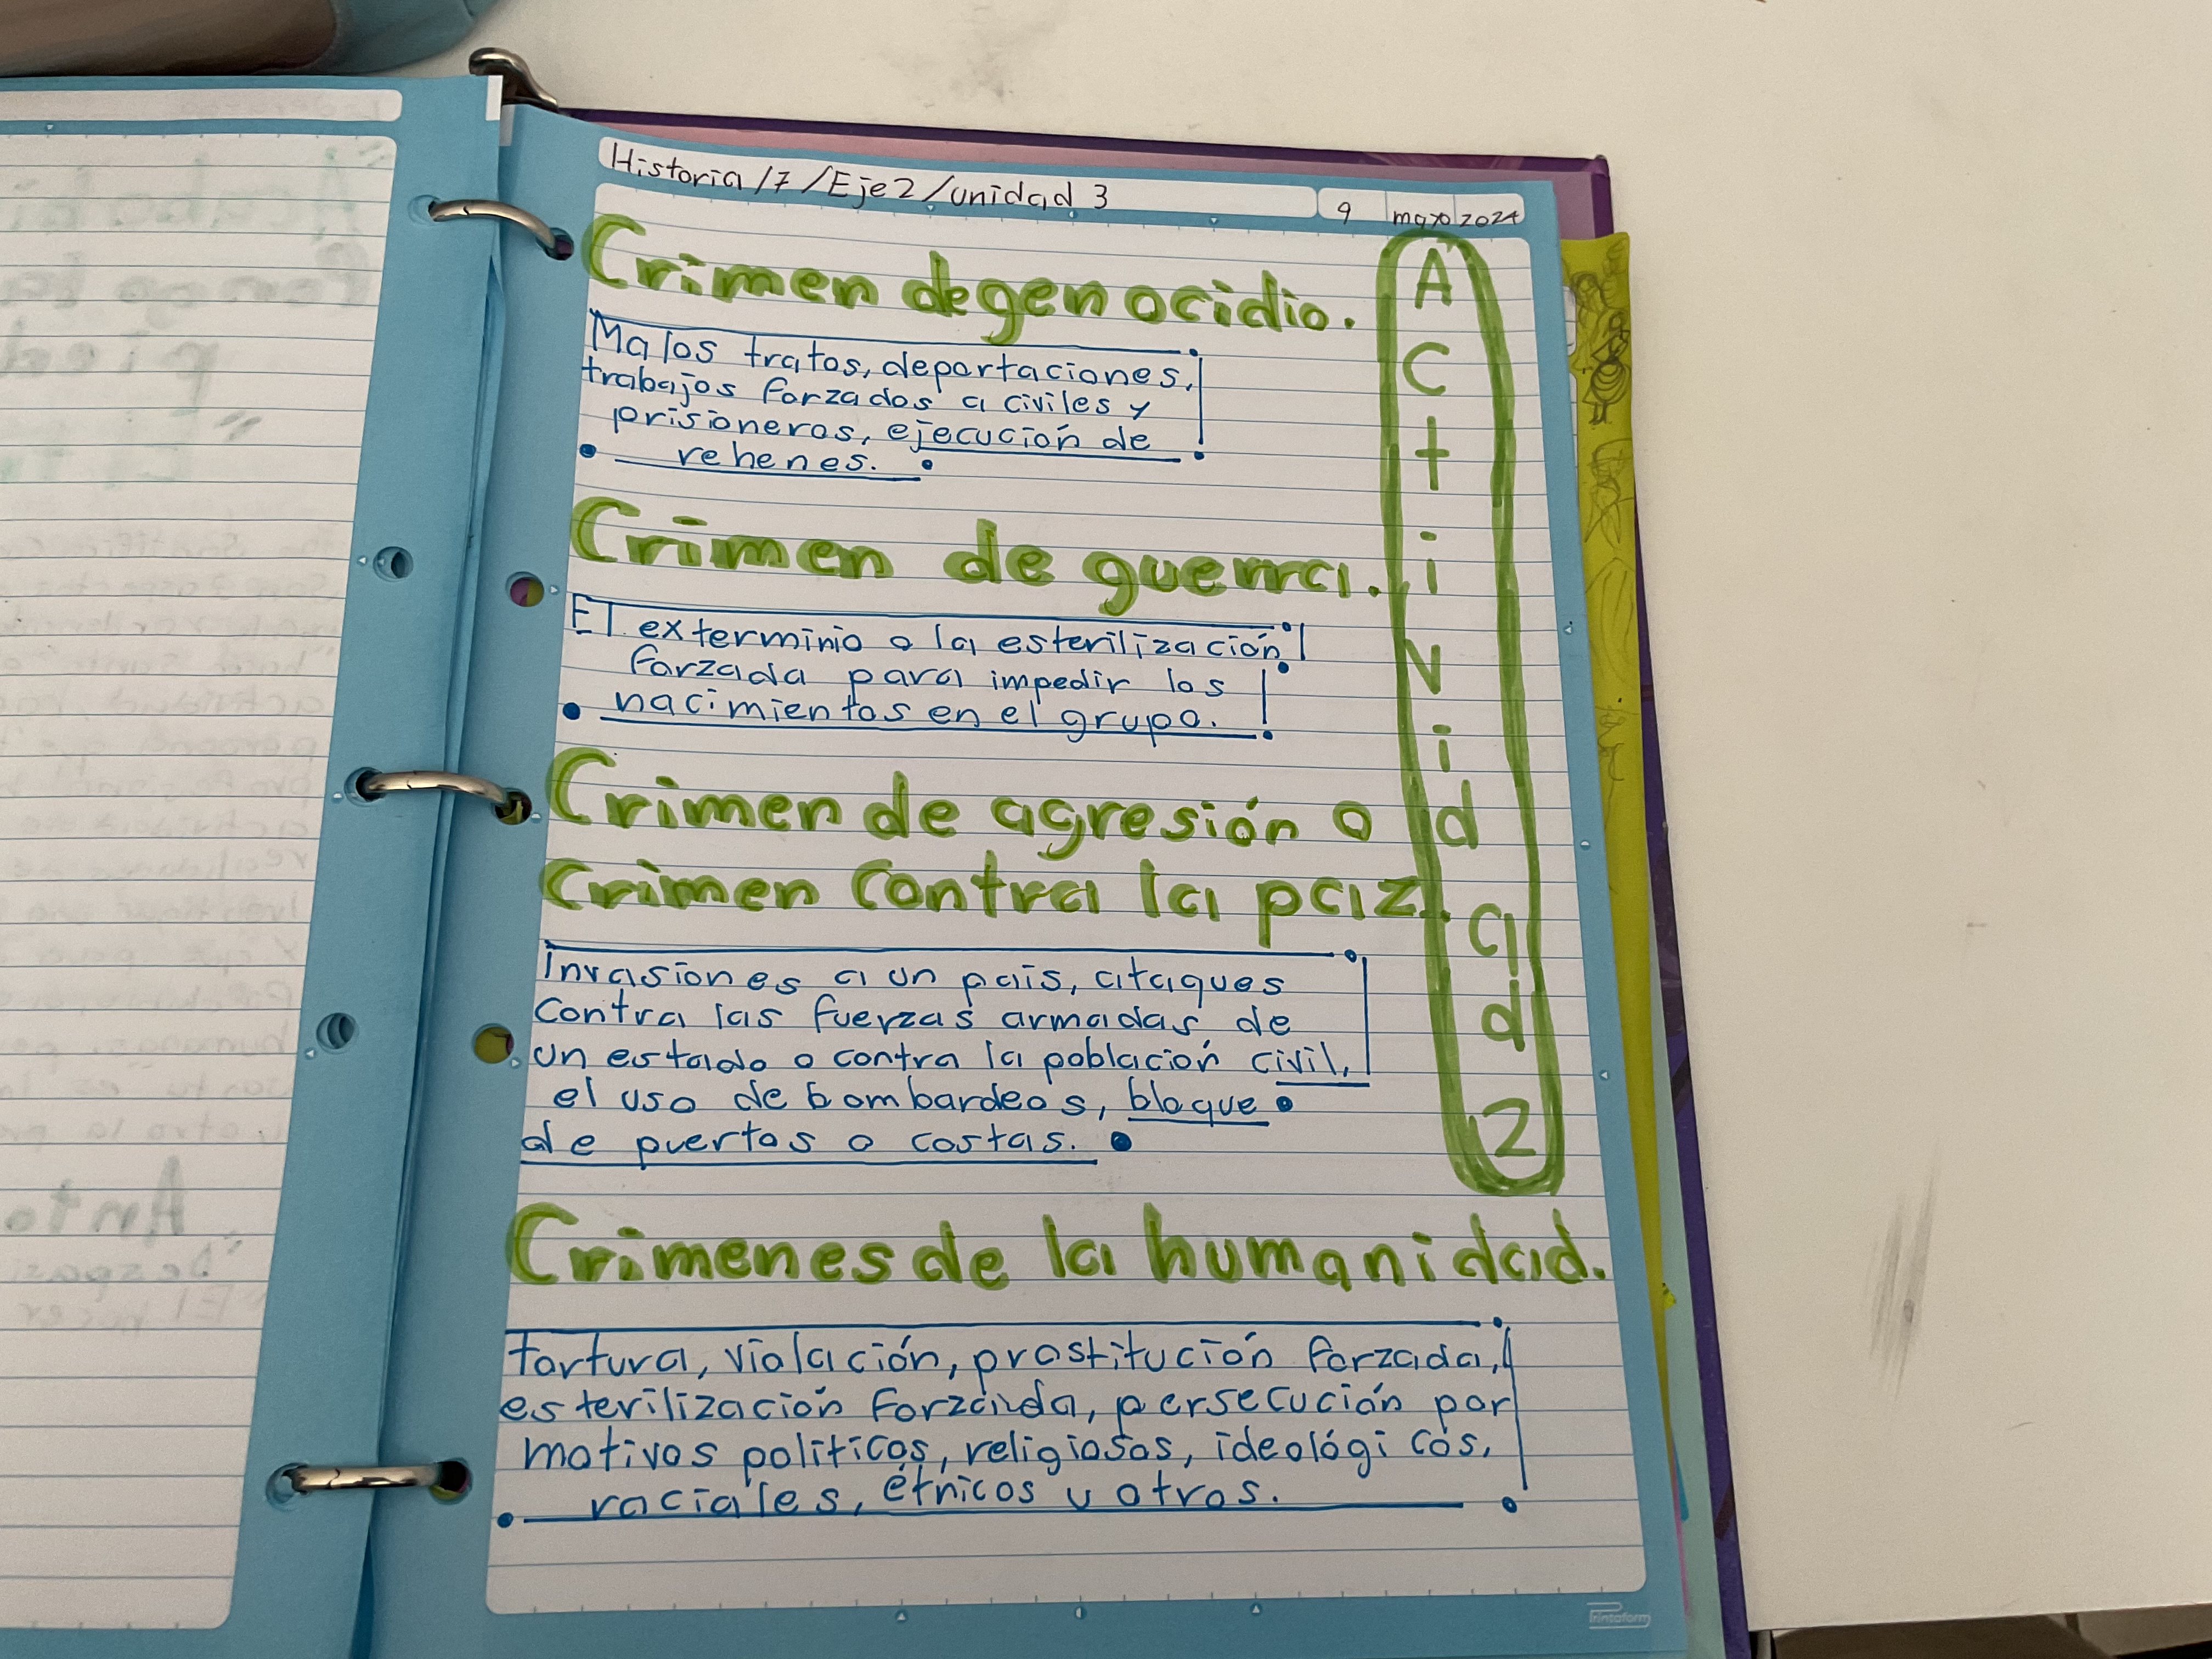 Historia/7/Eje2/unidad 3
9 mayo 2024
Actividad 2
Crimen de genocidio.
Malos tratos, deportaciones,
trabajos forzados a civiles y
prisioneros, ejecución de
rehenes.
Crimen de guerra.
El exterminio o la esterilización
forzada para impedir los
nacimientos en el grupo.
Crimen de agresión o
Crimen contra la paz.
Invasiones a un país, ataques
contra las fuerzas armadas de
un estado o contra la población civil,
el uso de bombardeos, bloque
de puertos o costas.
Crimenes de la humanidad.
tortura, violación, prostitución forzada,
esterilización forzada, persecución por
motivos políticos, religiosos, ideológicos,
raciales, étnicos u otros.
Printaform